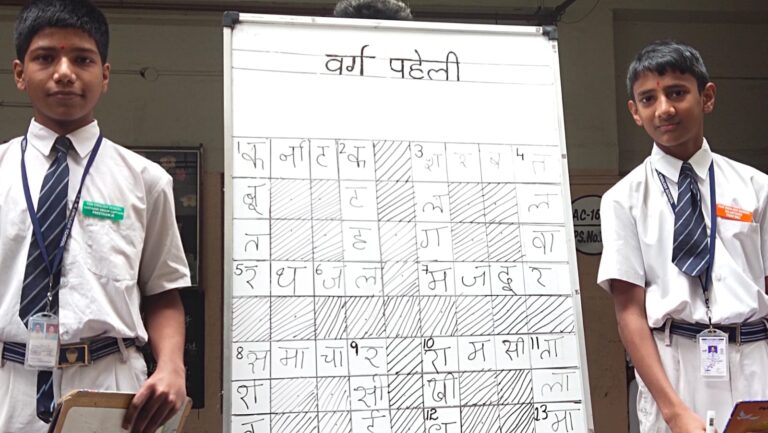 वर्ग पहेली
1क र्ना ट 2क 3श र ब 4त
बू ट ल ल
त ह ग वा
5र ध 6ज ल 7म ज दू र
8स मा चा 9र 10रा म सी 11ता
श सी खी ला
ई 12 13मा
AC-16
PS.No.